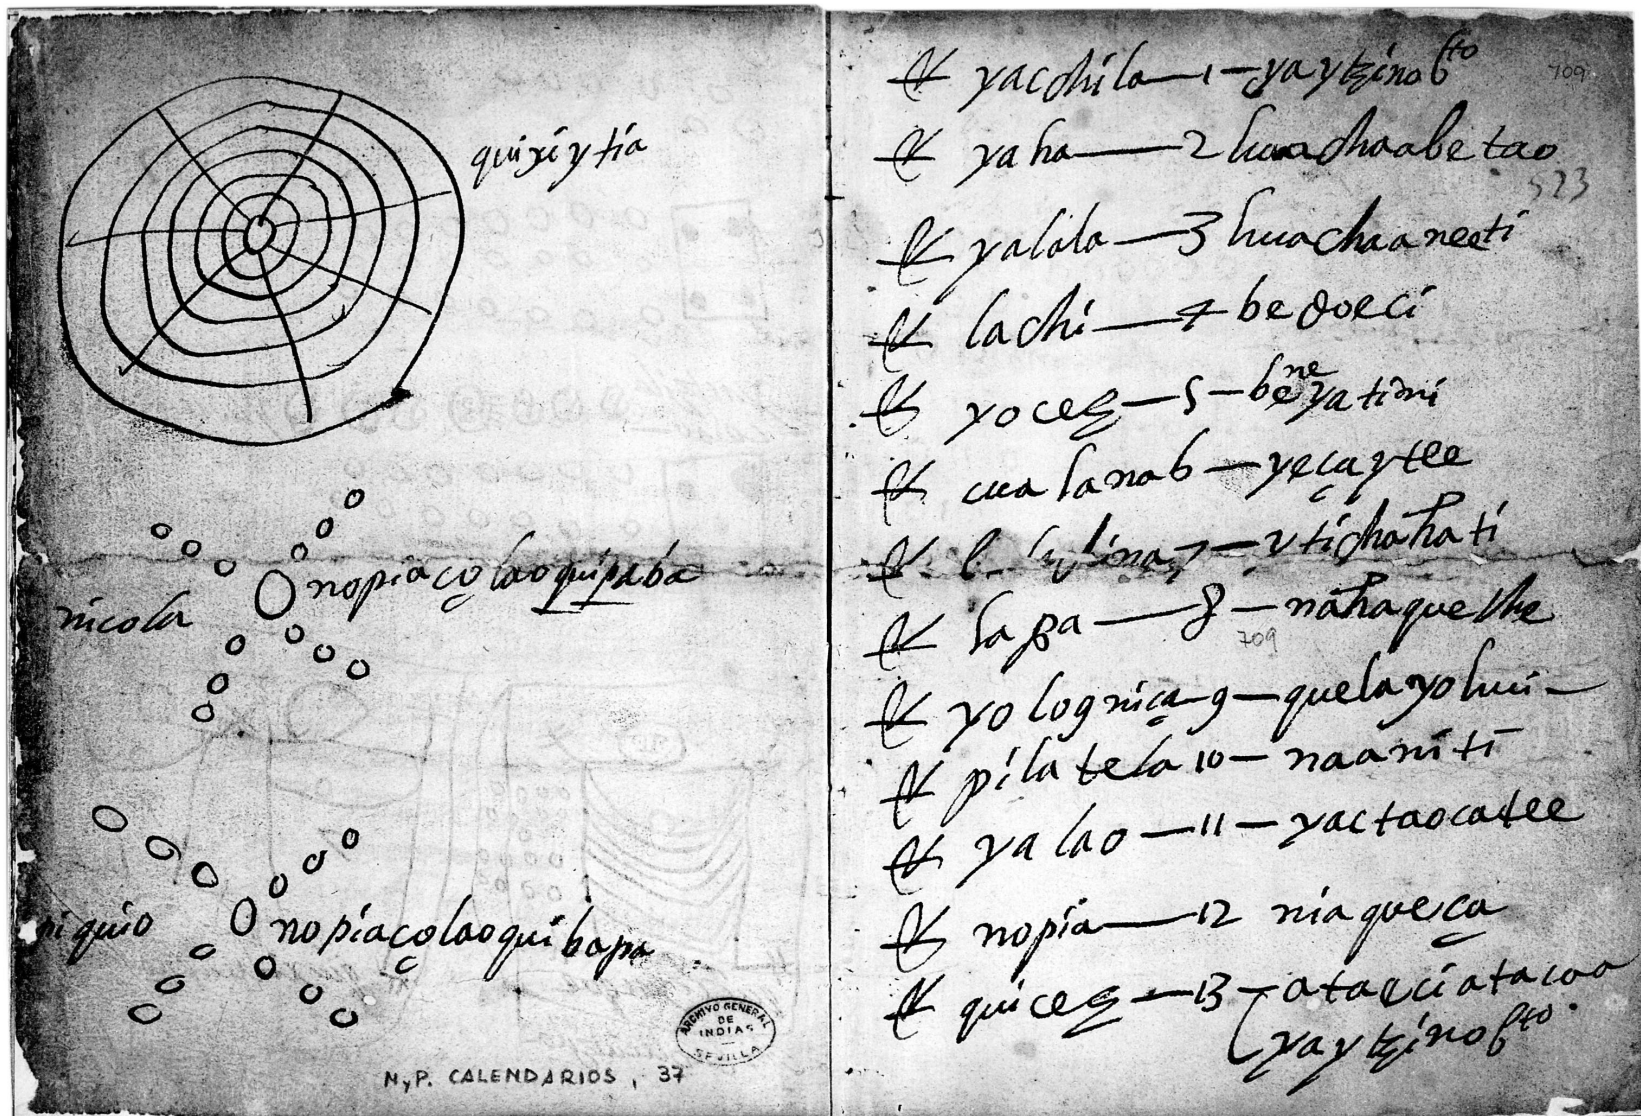 quixiytia
nopiaçolaoquipaba
nicola
niquio
nopiaçolaoquibapa
ARCHIVO GENERAL
DE
INDIAS
SEVILLA
M y P. CALENDARIOS, 37
yachila — 1 — yaytzinobto
709
yaha — 2 huachaabe tao
523
yalala — 3 huachaaneeti
lachi — 4 — be doeci
yoceg — 5 — beneyatini
cualanab — yeçaytee
7 — ytichahati
lapa — 8 — nahaqueche
709
yolognica — 9 — quelayohui —
pilatela 10 — naaniti
yalao — 11 — yactaocatee
nopia — 12 niaqueça
quiceg — 13 — ataeciatacaa
yaytzinobto